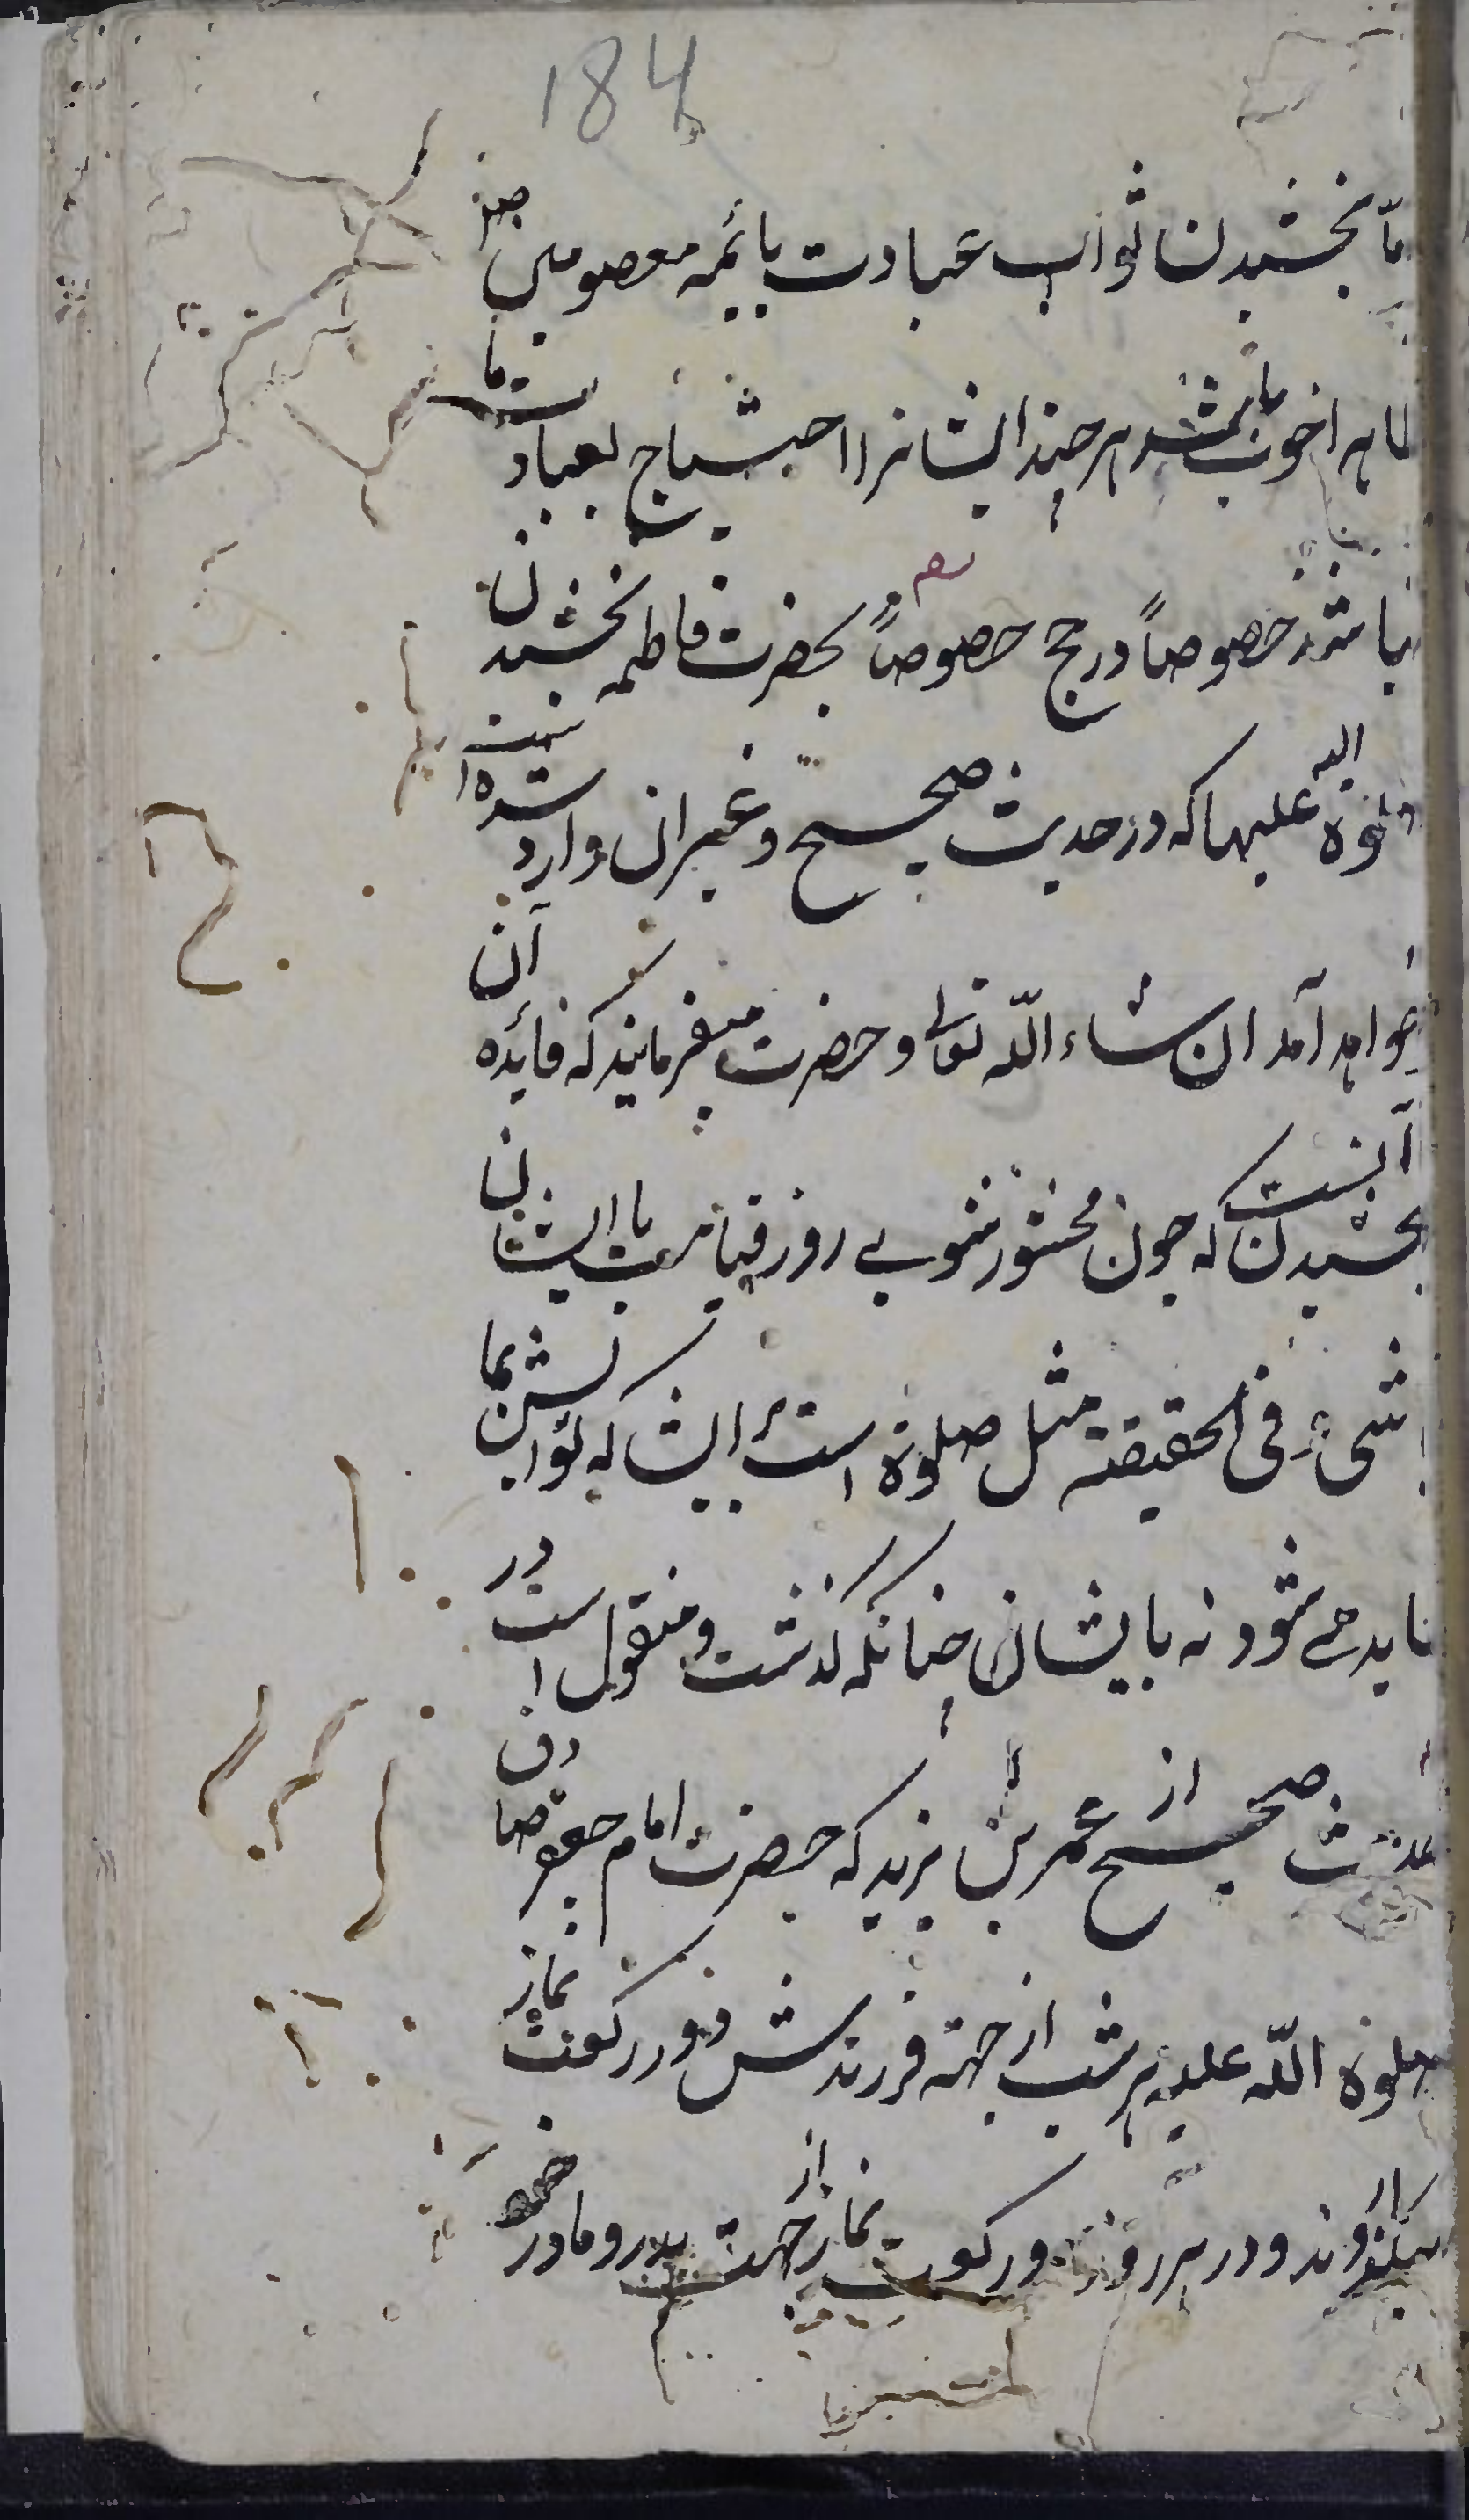 184
مّا بخشیدن ثواب عبادت بائمه معصومین صلو
ظاهرا خوب باشد هر چند ایشانرا احتیاج بعبادت ما
نباشد خصوصاً در حج خصوصاً بحضرت فاطمه بخشیدن
صلوة الله علیها که در حدیث صحیح و غیر ان وارد شده است
خواهد آمد ان شاء الله تعالی و حضرت میفرمایند که فائده آن
بخشیدن آنست که چون محشور شوی روز قیامت با ایشان
باشی و فی الحقیقته مثل صلوة است بر ایشان که ثوابش بما
عاید می شود نه بایشان چنانکه گذشت و منقول است در
حدیث صحیح از عمر بن یزید که حضرت امام جعفر صادق
صلوة الله علیه هر شب از جهته فرزندش دو رکعت نماز
میگذاردند و در هر روز دو رکعت نماز از جهت پدر و مادر خود